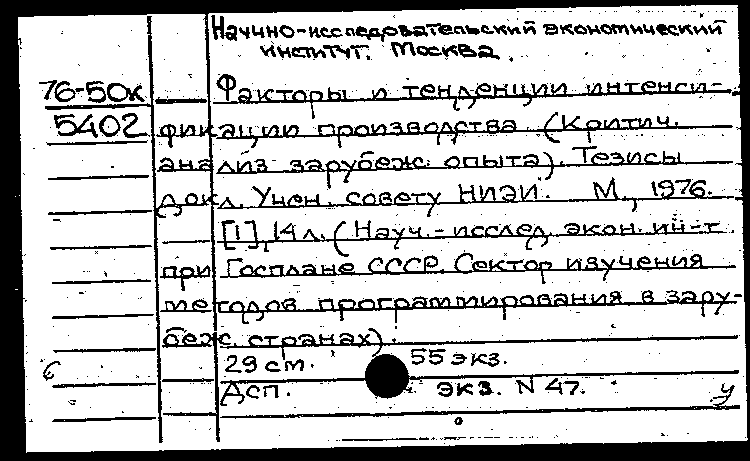 Научно-исследовательский экономический
институт. Москва.
76-50к
Факторы и тенденции интенси-
5402
фикации производства (Критич.
анализ зарубеж. опыта). Тезисы
докл. Учен. совету НИЭИ. М., 1976.
[1], 14 л. (Науч.-исслед. экон. ин-т
при Госплане СССР. Сектор изучения
методов программирования в зару-
беж. странах).
29 см. 55 экз.
Дсп. экз. N 47.
у